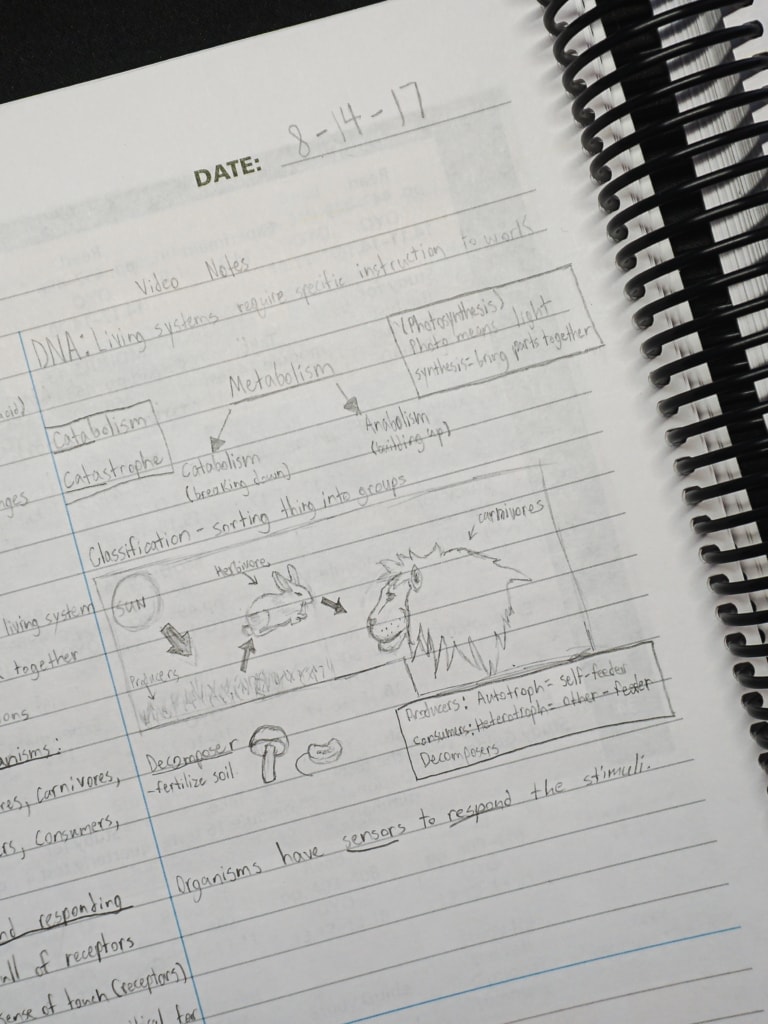 DATE: 8-14-17
Video Notes
DNA: Living systems require specific instruction to work
(Photosynthesis)
Photo means light
synthesis= bring parts together
Metabolism
Catabolism
Catastrophe
Catabolism
(breaking down)
Anabolism
(building up)
Classification - sorting thing into groups
sun
Herbivore
carnivores
Producers
Producers: Autotroph= self-feeder
consumers: Heterotroph= other-feeder
Decomposers
Decomposer
-fertilize soil
Organisms have sensors to respond the stimuli.
living system
together
anisms:
res, Carnivores,
rs, Consumers,
nd responding
all of receptors
sense of touch (receptors)